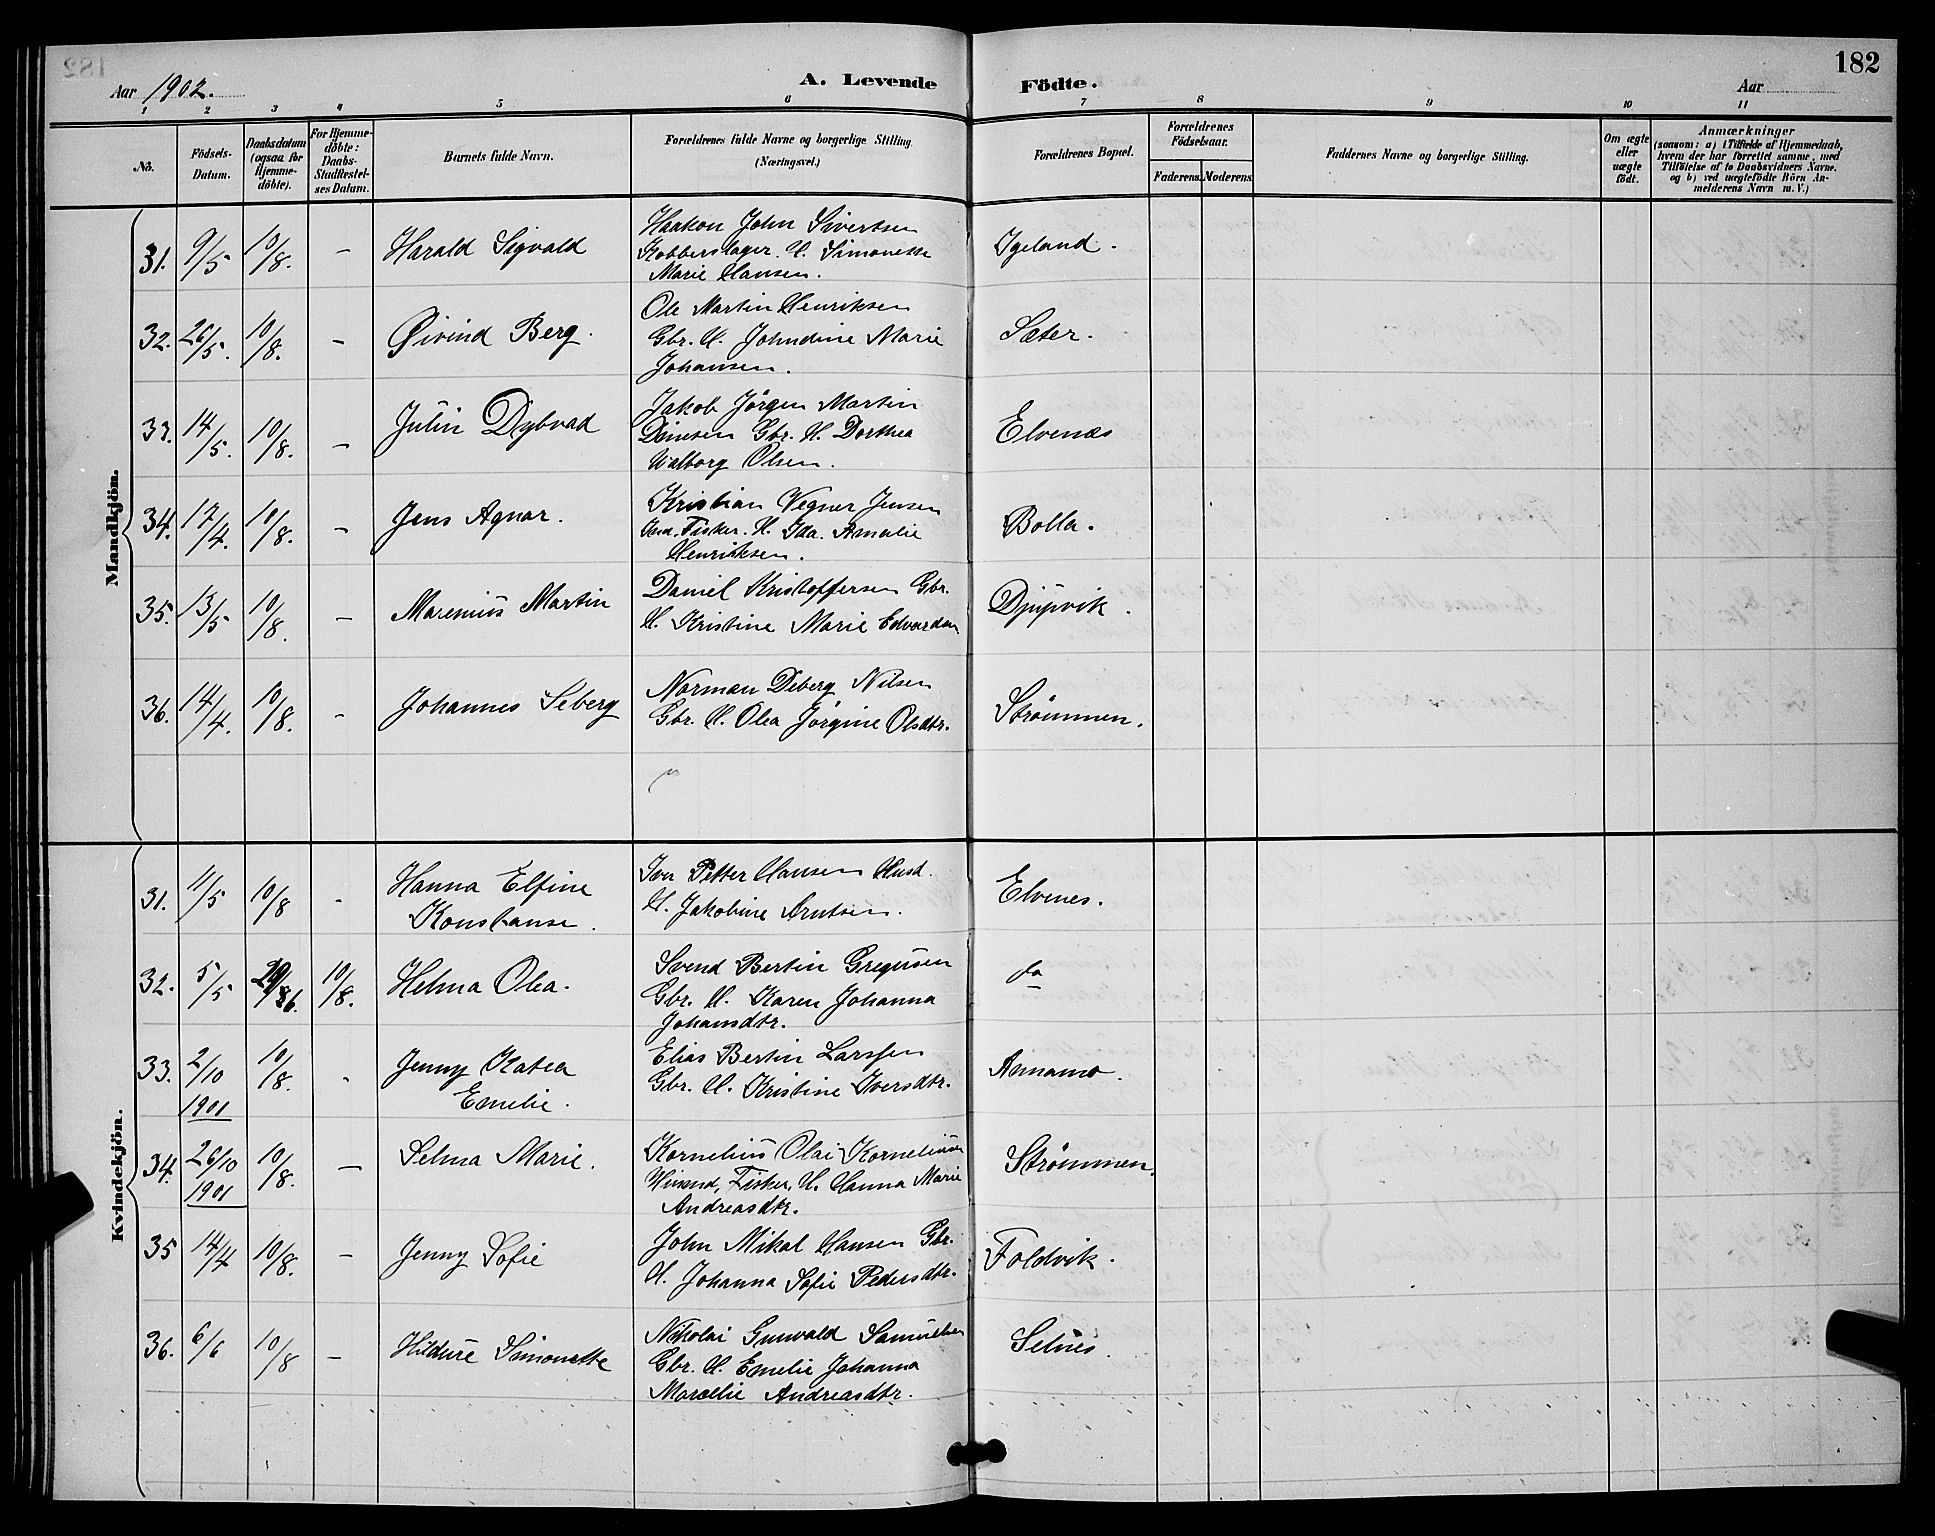 182
Aar 1902.
A. Levende Födte.
Aar
1 2 3 4 5 6 7 8 9 10 11
No.
Födsels-Datum.
Daabsdatum (ogsaa for Hjemme-döbte).
For Hjemme-döbte: Daabs-Stadfæstel-ses Datum.
Barnets fulde Navn.
Forældrenes fulde Navne og borgerlige Stilling. (Næringsvei.)
Forældrenes Bopæl.
Forældrenes Födselsaar.
Faderens. Moderens.
Faddernes Navne og borgerlige Stilling.
Om ægte eller uægte födt.
Anmærkninger
(saasom: a) i Tilfælde af Hjemmedaab,
hvem der har forrettet samme, med
Tilföielse af to Daabsvidners Navne,
og b) ved uægtefödte Börn An-
melderens Navn m. V.)
Mandkjön.
31. 9/5 10/8. – Harald Sigvald
Haakon John Sivertsen
Kobberslager. H. Simonette
Marie Hansen.
Igeland.
32. 26/5. 10/8. – Øivind Berg.
Ole Martin Henriksen
Gbr. H. Johndine Marie
Johansen.
Sæter.
33. 14/5. 10/8. – Julin Dybvad
Jakob Jörgen Martin
Gbr. H. Dorthea
Walborg Olsen.
Elvenæs
34. 17/4. 10/8. – Jens Agnar.
Kristian Vegner Jensen
Fisker. H. Ida. Amalie
Henriksen.
Bolla.
35. 13/5 10/8. – Marenius Martin
Daniel Kristoffersen Gbr.
H. Kristine Marie Edvardsen
Djupvik.
36. 14/4. 10/8. – Johannes Seberg
Norman Deberg Nilsen
Gbr. H. Olea Jörgine Olsdtr.
Strømmen.
Kvindekjön.
31. 11/5 10/8 - Hanna Elfine
Konstanse.
Iver Petter Hansen Husd.
H. Jakobine Arntsen.
Elvenes.
32. 5/5 10/8. Helma Olea.
Svend Bertin Gregusen
Gbr. H. Karen Johanna
Johansdtr.
do
33. 2/10 1901 10/8. - Jenny Katea
Emelie.
Elias Bertin Larssen
Gbr. H. Kristine Iversdtr.
Annamo.
34. 26/10 1901 10/8. – Selma Marie.
Kornelius Olai Korneliusen
Fisker, H. Hanna Marie
Andreasdtr.
Strømmen.
35 14/4 10/8. – Jenny Sofie
John Mikal Hansen Gbr.
H. Johanna Sofie Pedersdtr.
Foldvik.
36. 6/6 10/8 – Hildure Simonette
Nikolai Gunvald Samuelsen
Gbr. H. Emelie Johanna
Marcelie Andreasdtr.
Selnes.